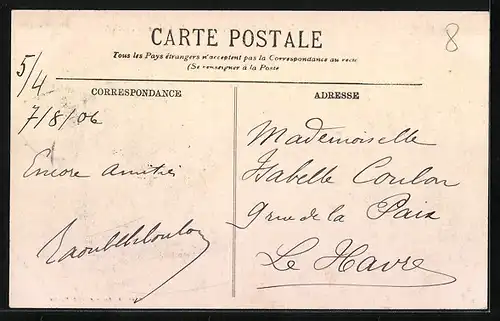 8
CARTE POSTALE
Tous les Pays étrangers n'acceptent pas la Correspondance au recto
(Se renseigner à la Poste
5/4
CORRESPONDANCE
7/8/06
Encore amitiés
ADRESSE
Mademoiselle
Isabelle Coulon
9 rue de la Paix
Le Havre